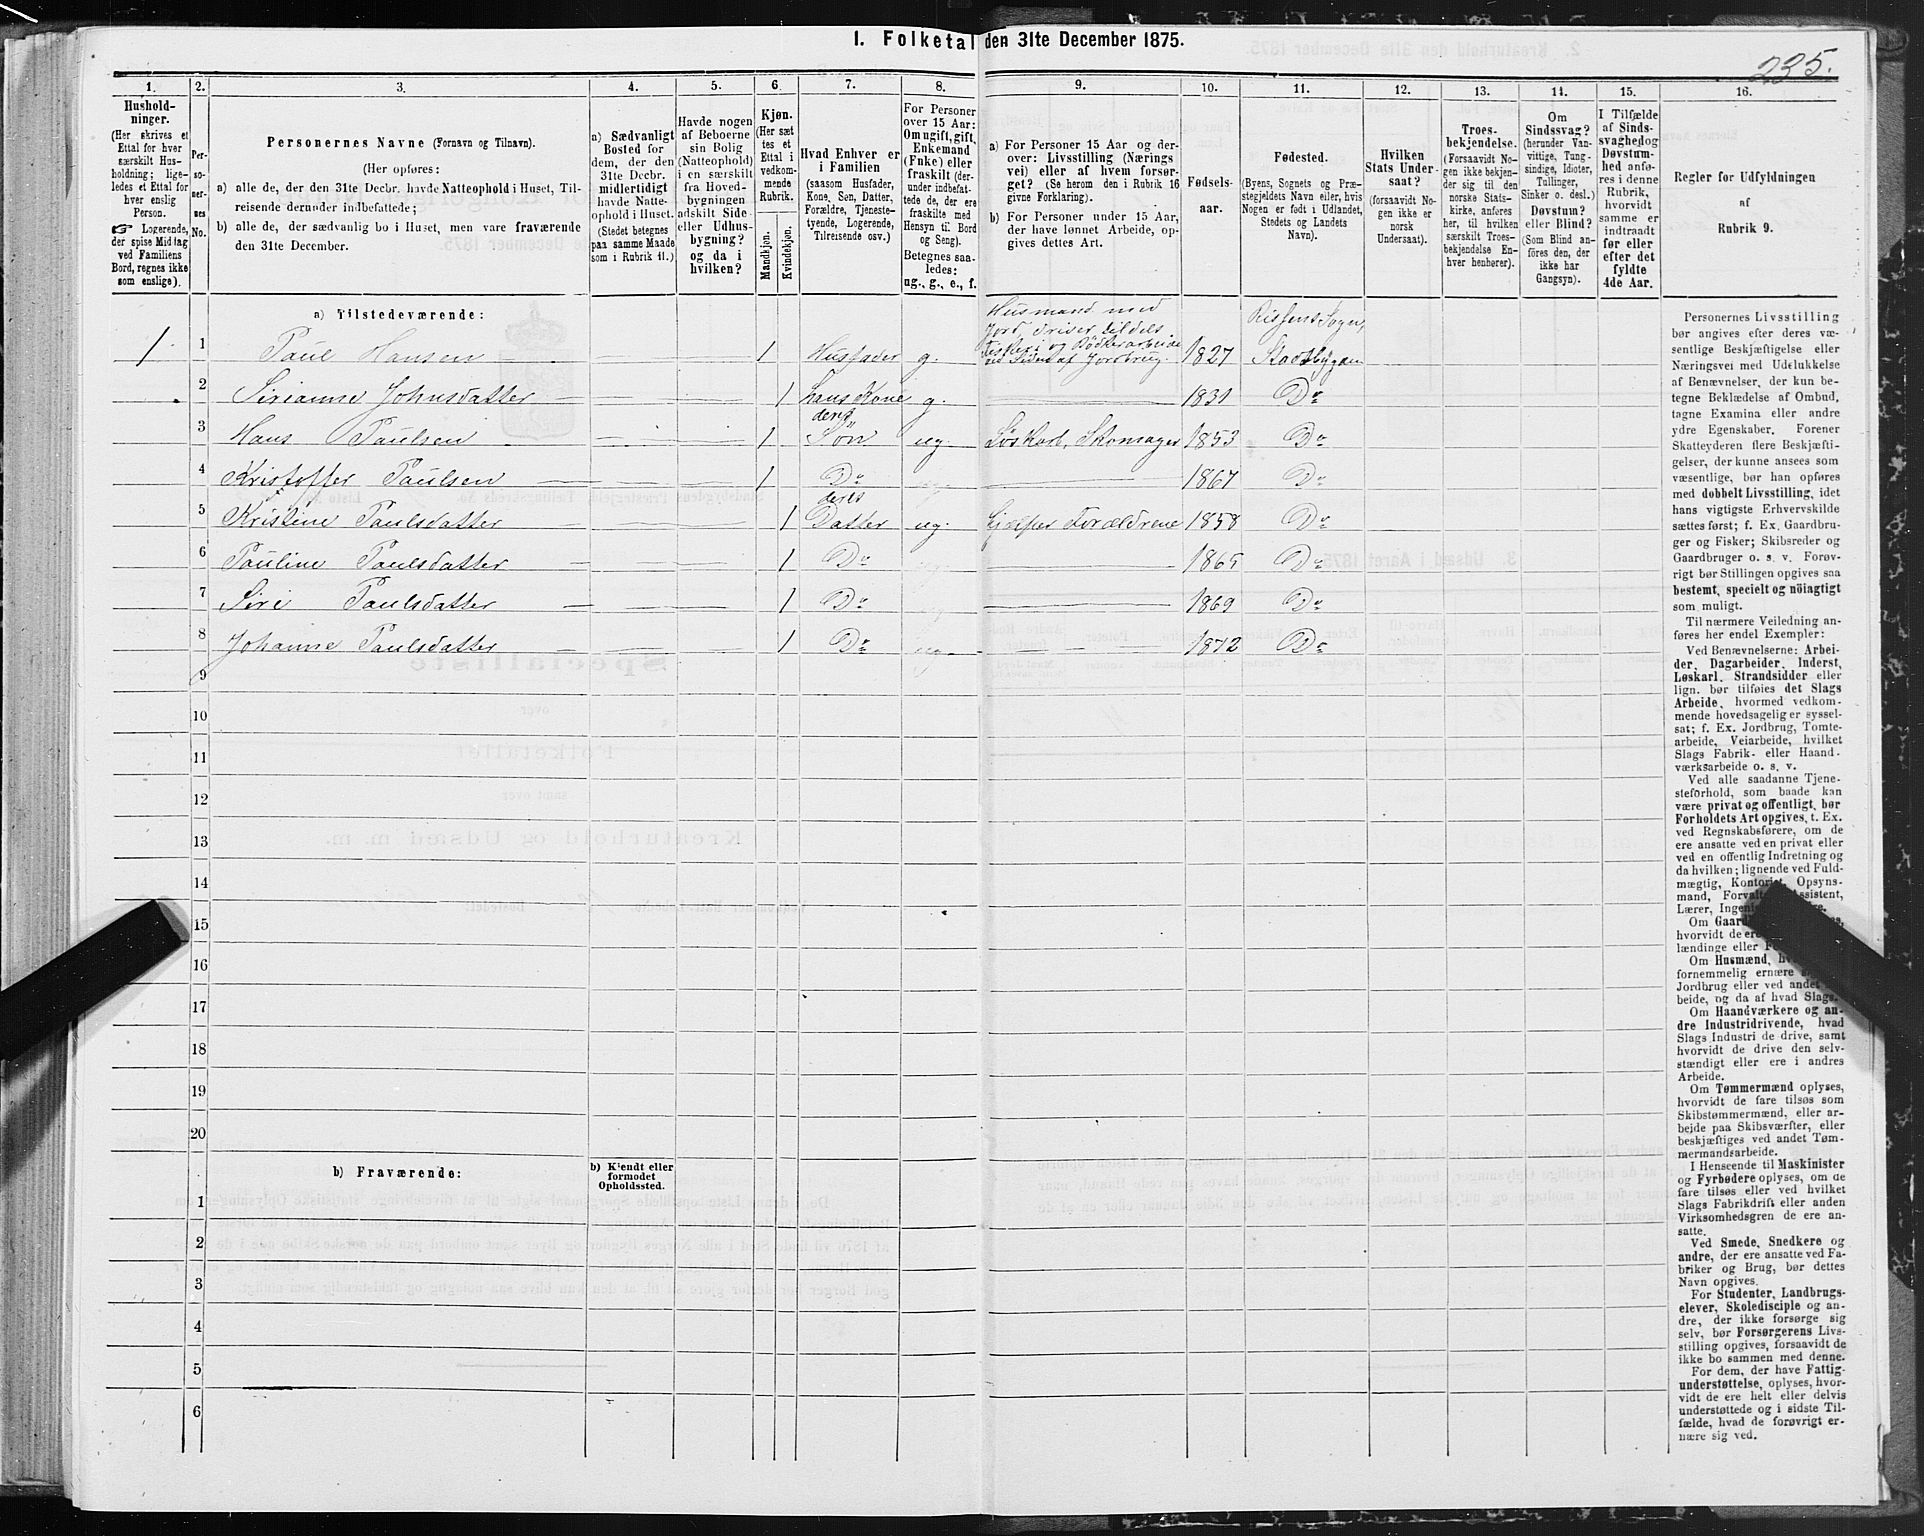 1. Folketal den 31te December 1875.
235.
1.
2.
3.
4.
5.
6.
7.
8.
9.
10.
11.
12.
13.
14.
15.
16.
Hushold-
ninger.
(Her skrives et
Ettal for hver
særskilt Hus-
holdning; lige-
ledes et Ettal for
hver enslig
Person.
☞ Logerende,
der spise Middag
ved Familiens
Bord, regnes ikke
som enslige).
Per-
so-
ner-
nes
No.
Personernes Navne (Fornavn og Tilnavn).
(Her opføres:
a) alle de, der den 31te Decbr. havde Natteophold i Huset, Til-
reisende derunder indbefattede;
b) alle de, der sædvanlig bo i Huset, men vare fraværende
den 31te December.
a) Sædvanligt
Bosted for
dem, der den
31te Decbr.
midlertidigt
havde Natte-
ophold i Huset.
(Stedet betegnes
paa samme Maade
som i Rubrik 11.)
Havde nogen
af Beboerne
sin Bolig
(Natteophold)
i en særskilt
fra Hoved-
bygningen
adskilt Side-
eller Udhus-
bygning?
og da i
hvilken?
Kjøn.
(Her sæt
tes et
Ettal i
vedkom-
mende
Rubrik.
Mandkjøn.
Kvindekjøn.
Hvad Enhver er
i Familien
(saasom Husfader,
Kone, Søn, Datter,
Forældre, Tjeneste-
tyende, Logerende,
Tilreisende osv.)
For Personer
over 15 Aar:
Om ugift, gift,
Enkemand
(Enke) eller
fraskilt (der-
under indbefat-
tede de, der ere
fraskilte med
Hensyn til Bord
og Seng).
Betegnes saa-
ledes:
ug., g., e., f.
a) For Personer 15 Aar og der-
over: Livsstilling (Nærings
vei) eller af hvem forsør-
get? (Se herom den i Rubrik 16
givne Forklaring).
b) For Personer under 15 Aar,
der have lønnet Arbeide, op-
gives dettes Art.
Fødsels-
aar.
Fødested.
(Byens, Sognets og Præ-
stegjeldets Navn eller, hvis
Nogen er født i Udlandet,
Stedets og Landets
Navn).
Hvilken
Stats Under-
saat?
(forsaavidt No-
gen ikke er
norsk
Undersaat).
Troes-
bekjendelse.
(Forsaavidt No-
gen ikke bekjen-
der sig til den
norske Stats-
kirke, anføres
her, til hvilken
særskilt Troes-
bekjendelse En-
hver henhører).
Om
Sindssvag?
(herunder Van-
vittige, Tung-
sindige, Idioter,
Tullinger,
Sinker o. desl.)
Døvstum?
eller Blind?
(Som Blind an-
føres den, der
ikke har
Gangsyn).
I Tilfælde
af Sinds-
svaghed og
Døvstum-
hed anfø-
res i denne
Rubrik,
hvorvidt
samme er
indtraadt
før eller
efter det
fyldte
4de Aar.
Regler for Udfyldningen
af
Rubrik 9.
a) Tilstedeværende:
Husmand med
Jord, driver tildels
Fiskeri og Bødkerarbeide
ved Siden af Jordbrug.
Rissens Sogn,
1 1 Paul Hansen 1 Husfader g. 1827 Stadsbygden
2 Sirianne Johnsdatter 1 hans Kone g. 1831 Do
3 Hans Paulsen 1 deres Søn ug. Løskarl, Skomager 1853 Do
4 Kristoffer Paulsen 1 Do 1867 Do
5 Kristine Paulsdatter 1 deres Datter ug. hjælper Forældrene 1858 Do
6 Pauline Paulsdatter 1 Do 1865 Do
7 Siri Paulsdatter 1 Do 1869 Do
8 Johanne Paulsdatter 1 Do 1872 Do
9
10
11
12
13
14
15
16
17
18
19
20
b) Fraværende:
b) Kjendt eller
formodet
Opholdssted.
1
2
3
4
5
6
Personernes Livsstilling
bør angives efter deres væ-
sentlige Beskjæftigelse eller
Næringsvei med Udelukkelse
af Benævnelser, der kun be-
tegne Beklædelse af Ombud,
tagne Examina eller andre
ydre Egenskaber. Forener
Skatteyderen flere Beskjæfti-
gelser, der kunne ansees som
væsentlige, bør han opføres
med dobbelt Livsstilling, idet
hans vigtigste Erhvervskilde
sættes først; f. Ex. Gaardbru-
ger og Fisker; Skibsreder og
Gaardbruger o. s. v. Forøv-
rigt bør Stillingen opgives saa
bestemt, specielt og nöiagtigt
som muligt.
Til nærmere Veiledning an-
føres her endel Exempler:
Ved Benævnelserne: Arbei-
der, Dagarbeider, Inderst,
Løskarl, Strandsidder eller
lign. bør tilføies det Slags
Arbeide, hvormed vedkom-
mende hovedsagelig er syssel-
sat; f. Ex. Jordbrug, Tomte-
arbeide, Veiarbeide, hvilket
Slags Fabrik- eller Haand-
værksarbeide o. s. v.
Ved alle saadanne Tjene-
steforhold, som baade kan
være privat og offentligt, bør
Forholdets Art opgives, t. Ex.
ved Regnskabsførere, om de
ere ansatte ved en privat eller
ved en offentlig Indretning og
da hvilken; lignende ved Fuld-
mægtig, Kontorist, Opsyns-
mand, Forvalter, Assistent,
Lærer, Ingeniør
Om
hvorvidt de ere
lændinge eller
Om Husmænd,
fornemmelig ernære
Jordbrug eller ved andet
beide, og da af hvad Slags.
Om Haandværkere og an-
dre Industridrivende, hvad
Slags Industri de drive, samt
hvorvidt de drive den selv-
stændigt eller ere i andres
Arbeide.
Om Tømmermænd oplyses,
hvorvidt de fare tilsøs som
Skibstømmermænd, eller ar-
bejde paa Skibsværfter, eller
beskjæftiges ved andet Tøm-
mermandsarbeide.
I Henseende til Maskinister
og Fyrbødere oplyses, om de
fare tilsøs eller ved hvilket
Slags Fabrikdrift eller anden
Virksomhedsgren de ere an-
satte.
Ved Smede, Snedkere og
andre, der ere ansatte ved Fa-
briker og Brug, bør dettes
Navn opgives.
For Studenter, Landbrugs-
elever, Skoledisciple og an-
dre, der ikke forsørge sig
selv, bør Forsørgerens Livs-
stilling opgives, forsaavidt de
ikke bo sammen med denne.
For dem, der have Fattig-
understøttelse, oplyses, hvor-
vidt de ere helt eller delvis
understøttede og i sidste Til-
fælde, hvad de forøvrigt er-
nære sig ved.